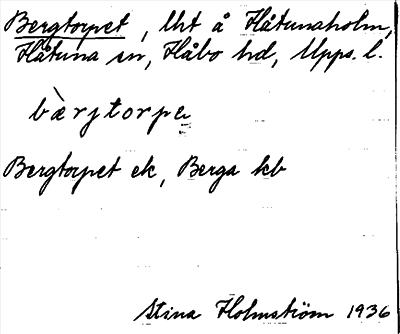 Bergtorpet, lht å Håtunaholm,
Håtuna sn, Håbo hd, Upps. l.
bàrjtorpe
Bergtorpet ek, Berga kb
Stina Holmström 1936